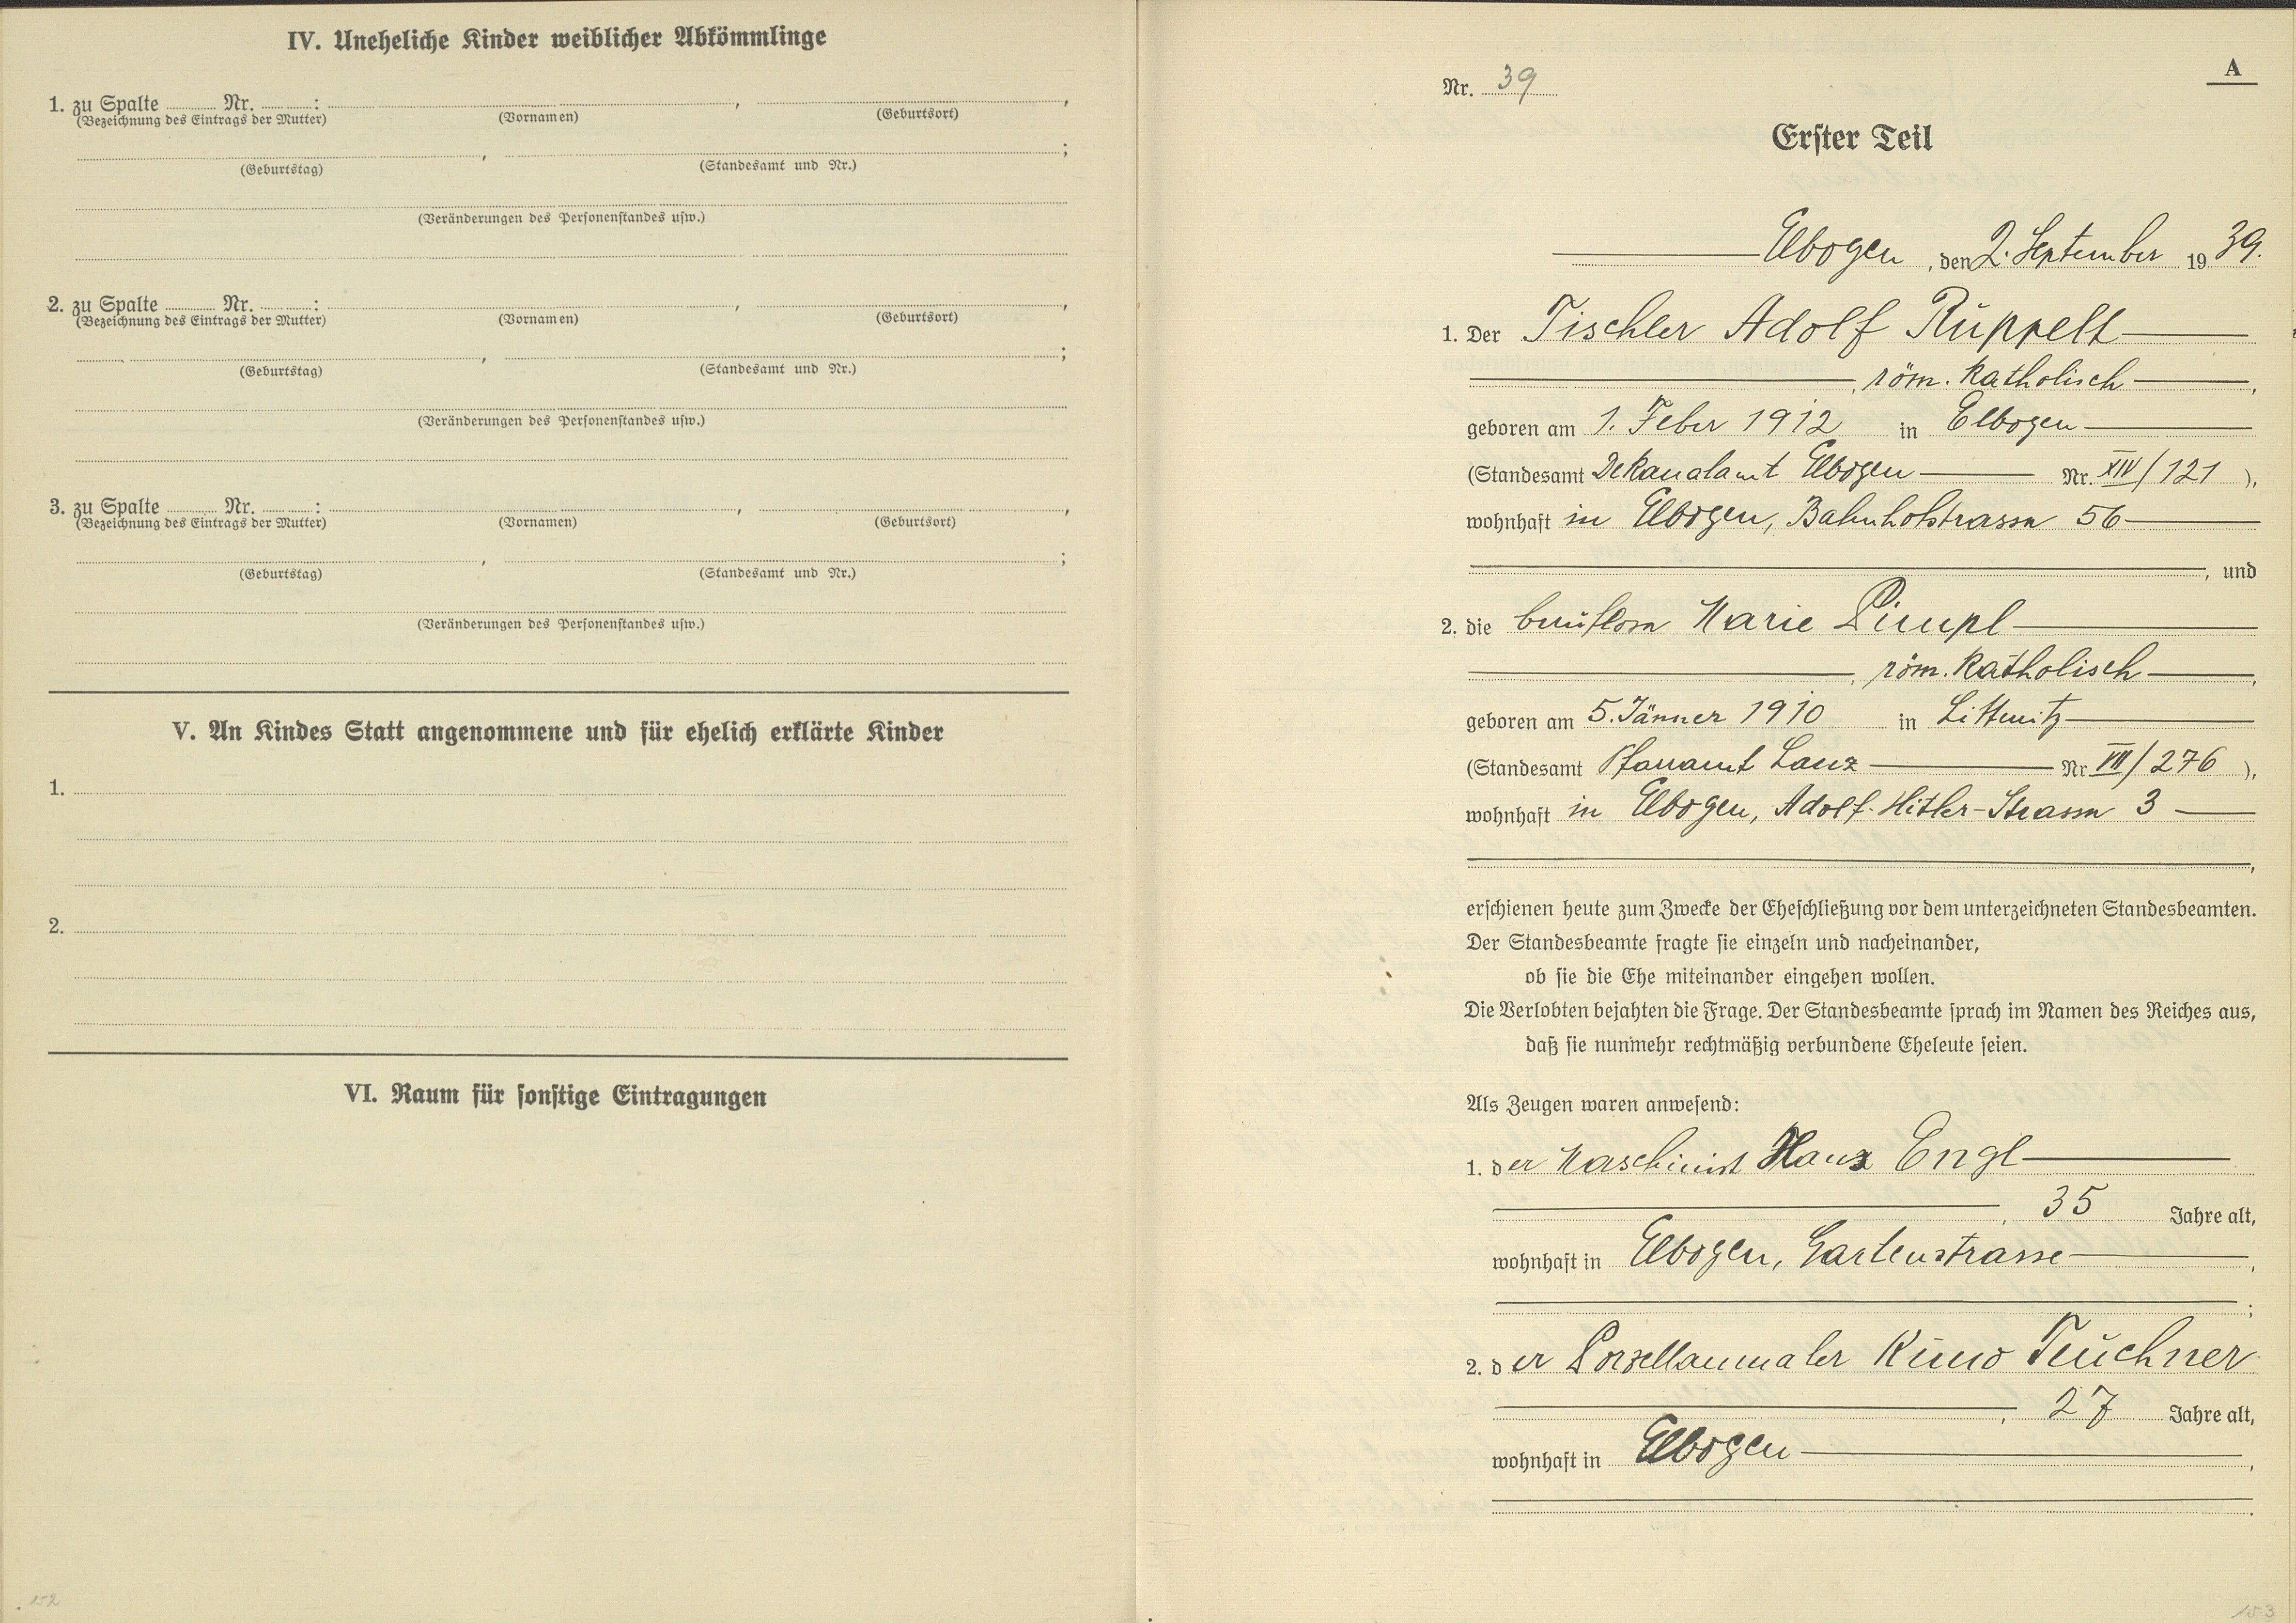 IV. Uneheliche Kinder weiblicher Abkömmlinge
1. zu Spalte ........ Nr. ........:
(Bezeichnung des Eintrags der Mutter) (Vornamen) (Geburtsort)
(Geburtstag) (Standesamt und Nr.)
(Veränderungen des Personenstandes usw.)
2. zu Spalte ........ Nr. ........:
(Bezeichnung des Eintrags der Mutter) (Vornamen) (Geburtsort)
(Geburtstag) (Standesamt und Nr.)
(Veränderungen des Personenstandes usw.)
3. zu Spalte ........ Nr. ........:
(Bezeichnung des Eintrags der Mutter) (Vornamen) (Geburtsort)
(Geburtstag) (Standesamt und Nr.)
(Veränderungen des Personenstandes usw.)
V. An Kindes Statt angenommene und für ehelich erklärte Kinder
1.
2.
VI. Raum für sonstige Eintragungen
152
A
Nr. 39
Erster Teil
Elbogen, den 2. September 1939.
1. Der Tischler Adolf Ruppelt
, röm. katholisch,
geboren am 1. Feber 1912 in Elbogen
(Standesamt Dekanalamt Elbogen Nr. XIV/121),
wohnhaft in Elbogen, Bahnhofstrasse 56
, und
2. die beruflose Marie Pimpl
, röm. katholisch,
geboren am 5. Jänner 1910 in Littmitz
(Standesamt Pfarramt Lanz Nr. VII/276),
wohnhaft in Elbogen, Adolf-Hitler-Strasse 3
,
erschienen heute zum Zwecke der Eheschließung vor dem unterzeichneten Standesbeamten.
Der Standesbeamte fragte sie einzeln und nacheinander,
ob sie die Ehe miteinander eingehen wollen.
Die Verlobten bejahten die Frage. Der Standesbeamte sprach im Namen des Reiches aus,
daß sie nunmehr rechtmäßig verbundene Eheleute seien.
Als Zeugen waren anwesend:
1. der Maschinist Hans Engl
, 35 Jahre alt,
wohnhaft in Elbogen, Gartenstrasse,
;
2. der Porzellanmaler Kuno Teuchner
, 27 Jahre alt,
wohnhaft in Elbogen,
.
153